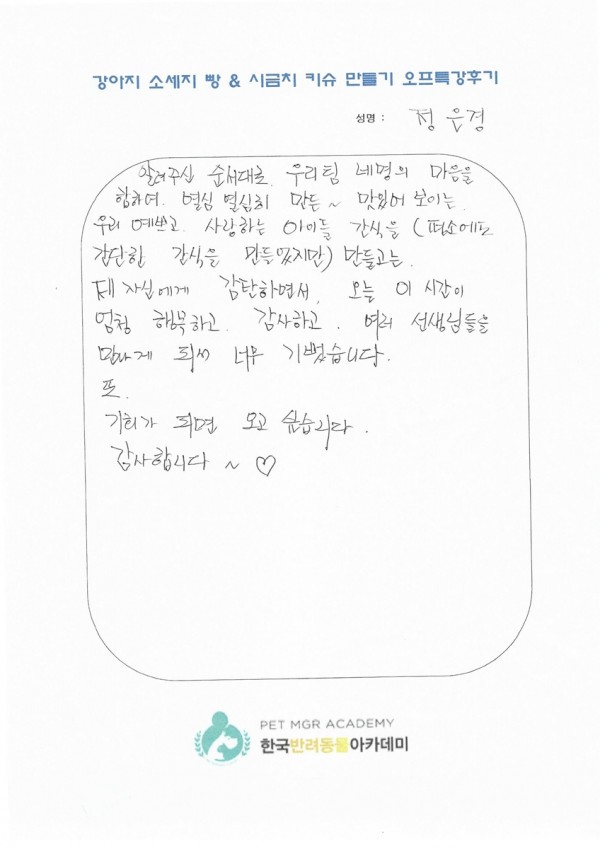 강아지 소세지 빵 & 시금치 키슈 만들기 오프특강후기
성명 : 정 은경
알려주신 순서대로. 우리팀 네명의 마음을
합하여. 열심 열심히 만든 ~ 맛있어 보이는.
우리 예쁘고. 사랑하는 아이들 간식을 (평소에도
간단한 간식을 만들었지만) 만들고는.
제 자신에게 감탄하면서, 오늘 이 시간이
엄청 행복하고. 감사하고. 여러 선생님들을
만나게 되서 너무 기뻤습니다.
또.
기회가 되면 오고 싶습니다.
감사합니다 ~ ♡
PET MGR ACADEMY
한국반려동물아카데미